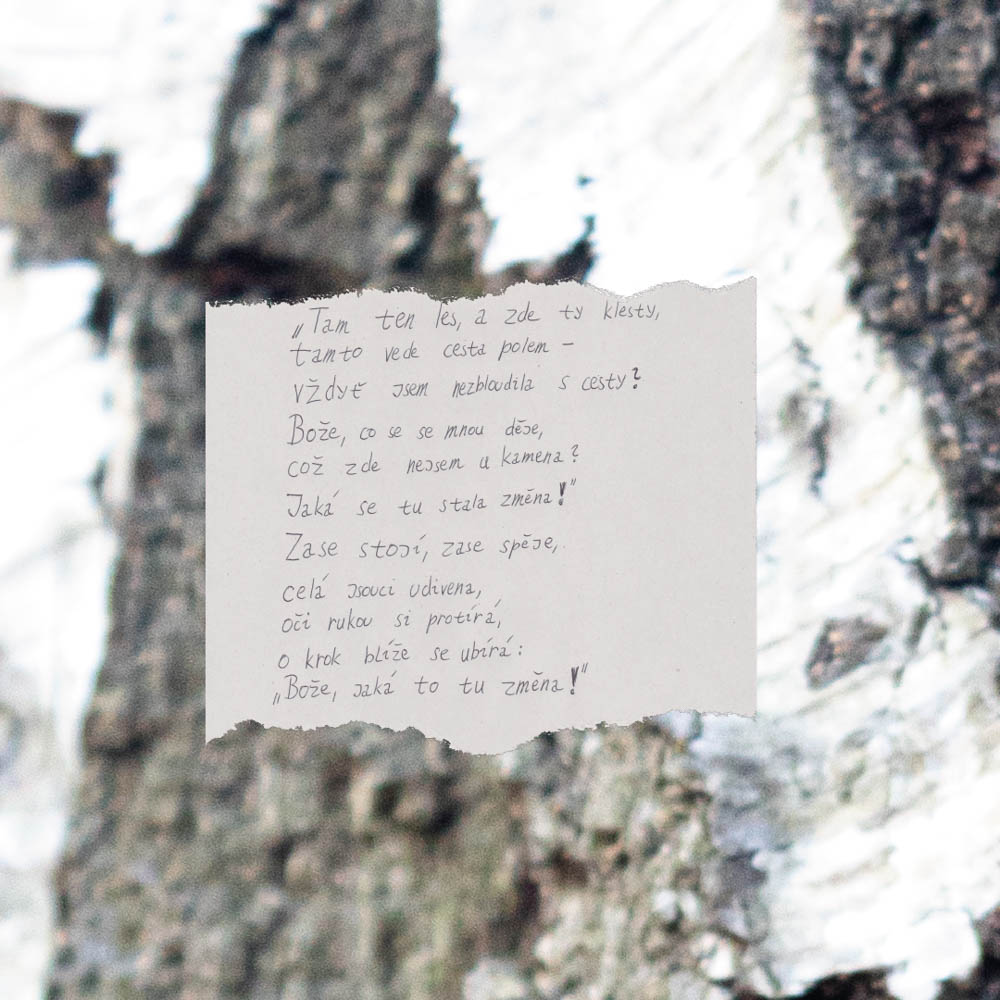 „Tam ten les, a zde ty klesty,
tamto vede cesta polem –
vždyť jsem nezbloudila s cesty?
Bože, co se se mnou děje,
což zde nejsem u kamena?
Jaká se tu stala změna!"
Zase stojí, zase spěje,
celá jsouci udivena,
oči rukou si protírá,
o krok blíže se ubírá:
„Bože, jaká to tu změna!"